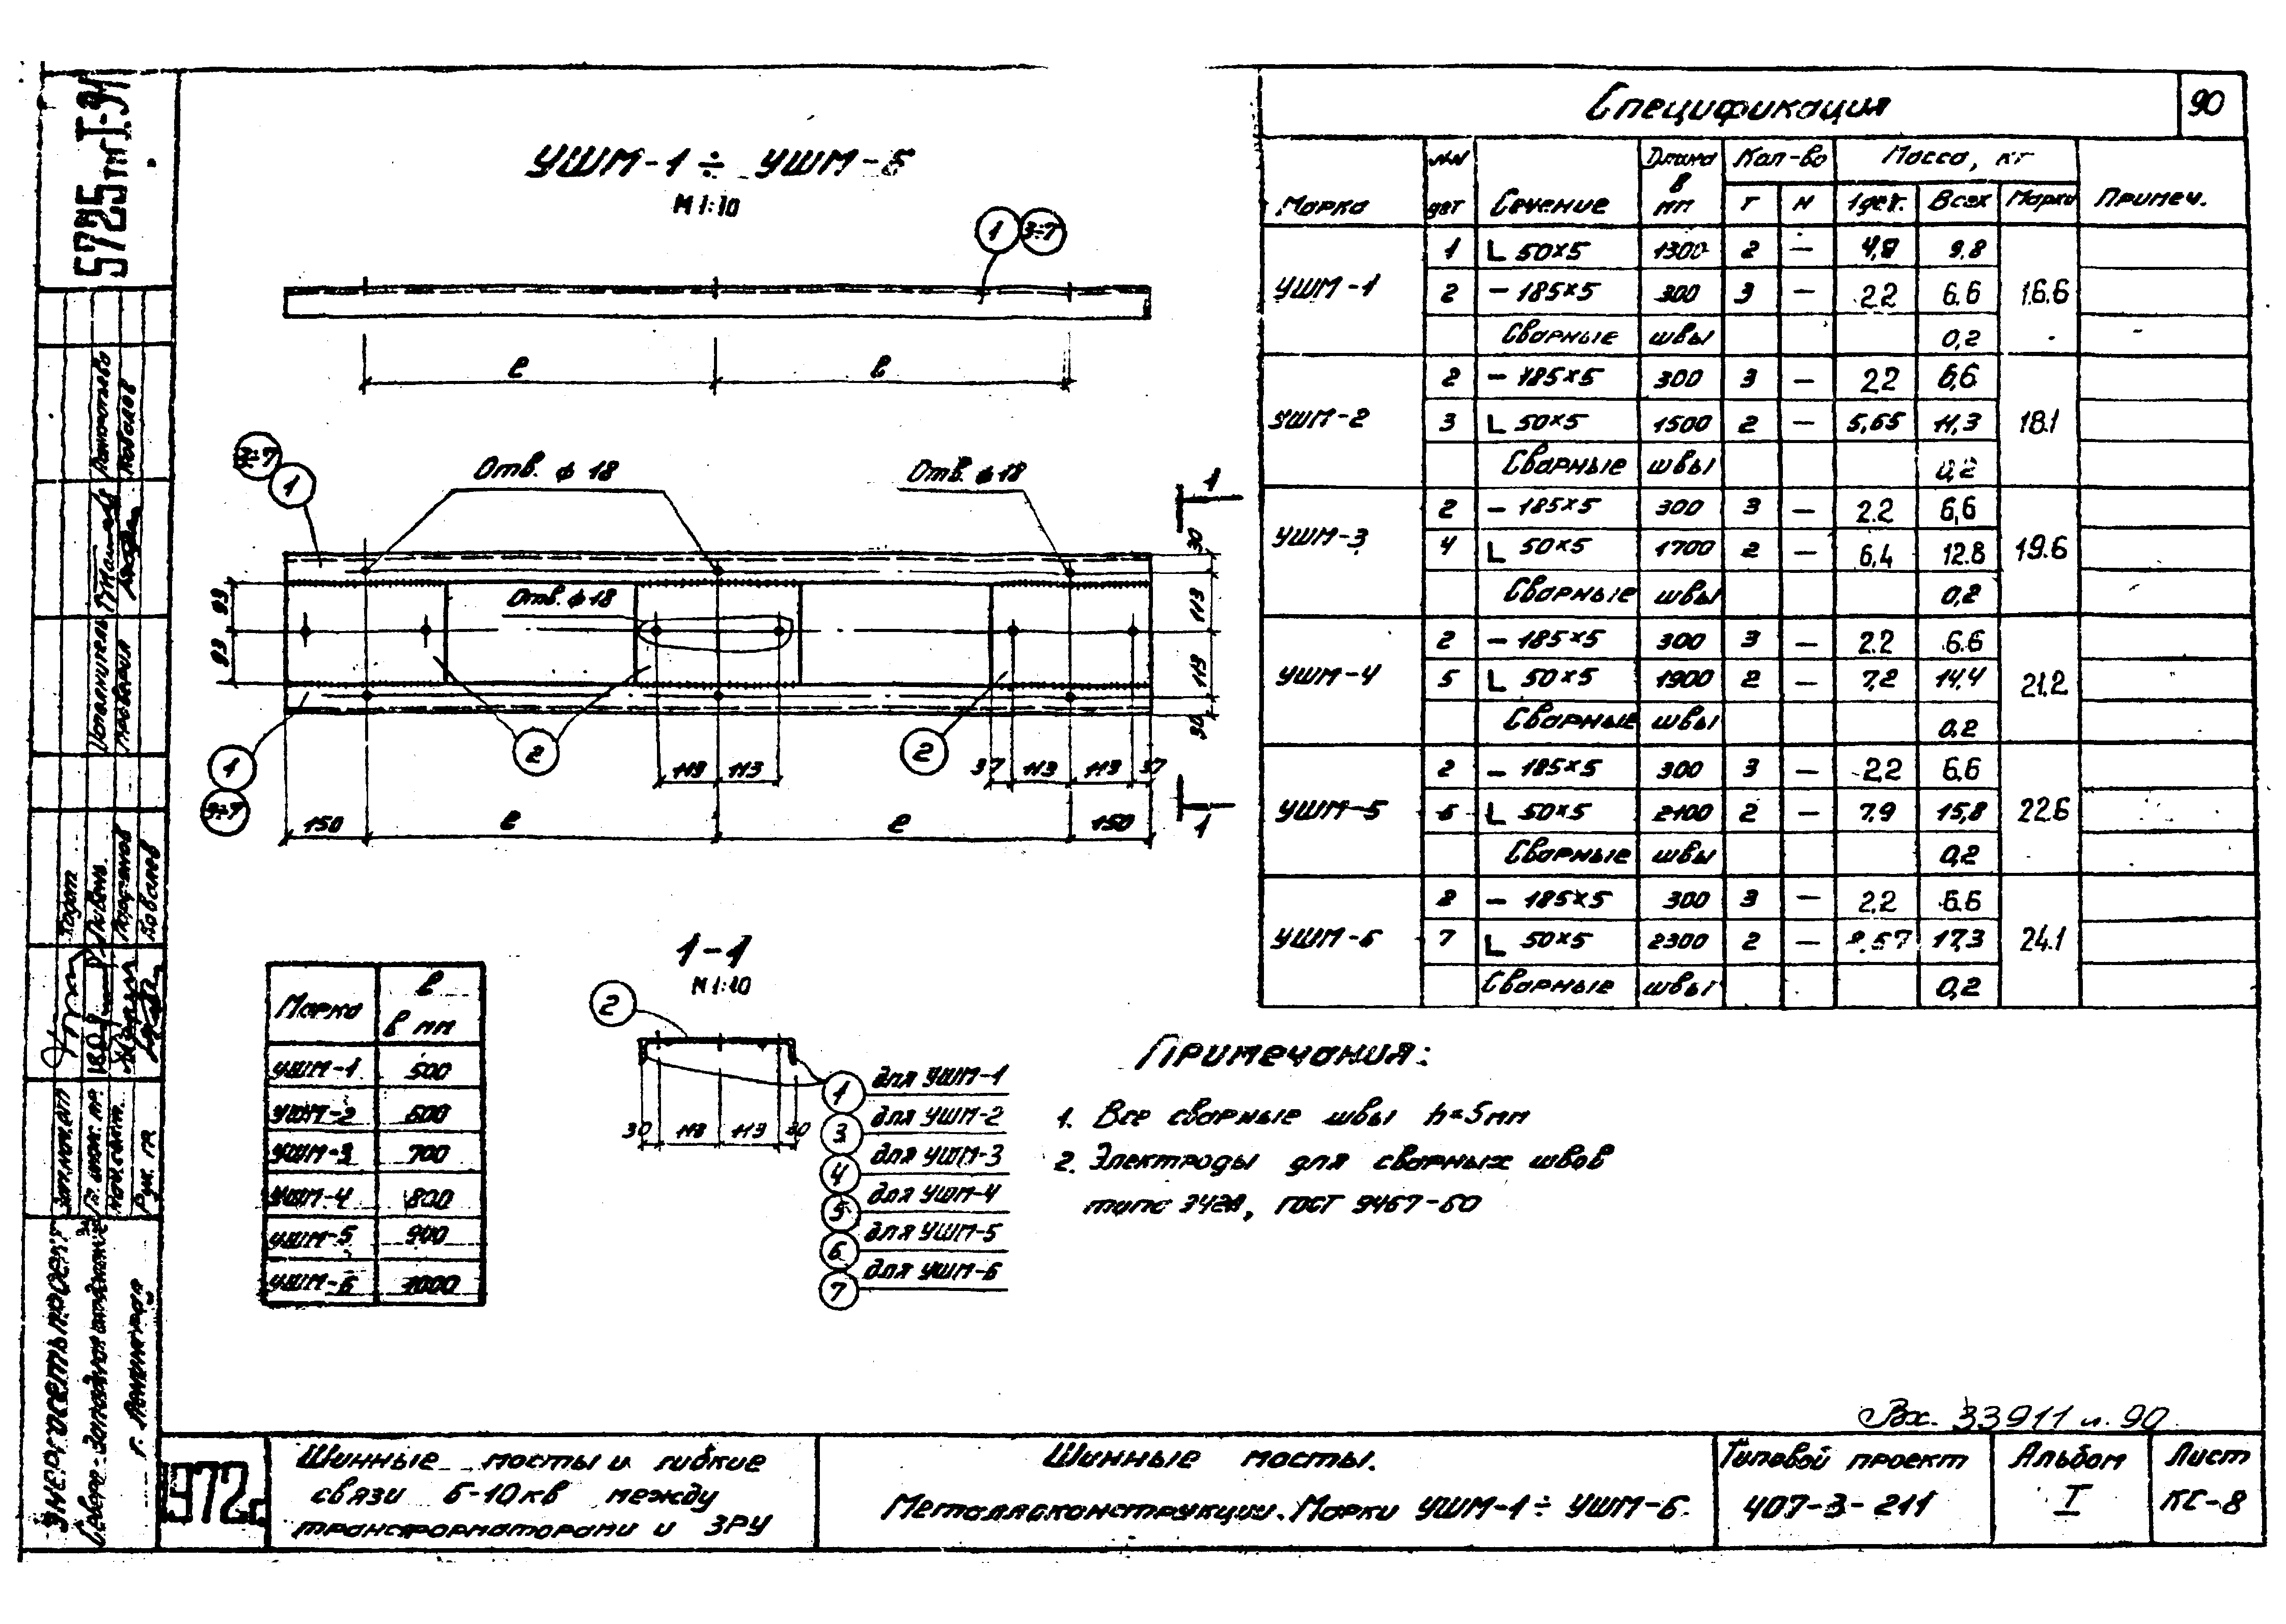 5725тм-Т-91
УШМ-1 ÷ УШМ-6
М 1:10
1 3÷7
ℓ ℓ
3÷7
1
Отв. ф 18
Отв. ф 18
1
Отв. ф 18
93
93
30
113
113
30
2
2
1
3÷7
113 113
37 113 113 37
150 ℓ ℓ 150
1
1-1
М 1:10
2
30 113 113 30
1 для УШМ-1
3 для УШМ-2
4 для УШМ-3
5 для УШМ-4
6 для УШМ-5
7 для УШМ-6
Марка ℓ в мм
УШМ-1 500
УШМ-2 600
УШМ-3 700
УШМ-4 800
УШМ-5 900
УШМ-6 1000
Спецификация
90
Марка NN дет Сечение Длина в мм Кол-во Масса, кг Примеч.
Т Н 1 дет. Всех Марки
УШМ-1 1 L 50×5 1300 2 — 4,9 9.8 16.6
2 — 185×5 300 3 — 2.2 6.6
Сварные швы 0,2
УШМ-2 2 — 185×5 300 3 — 2.2 6,6 18.1
3 L 50×5 1500 2 — 5,65 11,3
Сварные швы 0,2
УШМ-3 2 — 185×5 300 3 — 2.2 6,6 19.6
4 L 50×5 1700 2 — 6,4 12.8
Сварные швы 0,2
УШМ-4 2 — 185×5 300 3 — 2.2 6.6 21.2
5 L 50×5 1900 2 — 7,2 14,4
Сварные швы 0.2
УШМ-5 2 — 185×5 300 3 — 2,2 6.6 22.6
6 L 50×5 2100 2 — 7.9 15,8
Сварные швы 0,2
УШМ-6 2 — 185×5 300 3 — 2,2 6.6 24.1
7 L 50×5 2300 2 — 8.57 17,3
Сварные швы 0,2
Примечания:
1. Все сварные швы h=5мм
2. Электроды для сварных швов
типа Э42А, ГОСТ 9467-60
Вх. 33911 л. 90
1972г.
Шинные мосты и гибкие
связи 6-10кв между
трансформаторами и ЗРУ
Шинные мосты.
Металлоконструкции. Марки УШМ-1 ÷ УШМ-6.
Типовой проект
407-3-211
Альбом
I
Лист
КС-8
Энергосетьпроект
Северо-Западное отделение
г. Ленинград
Исполнитель
Проверил